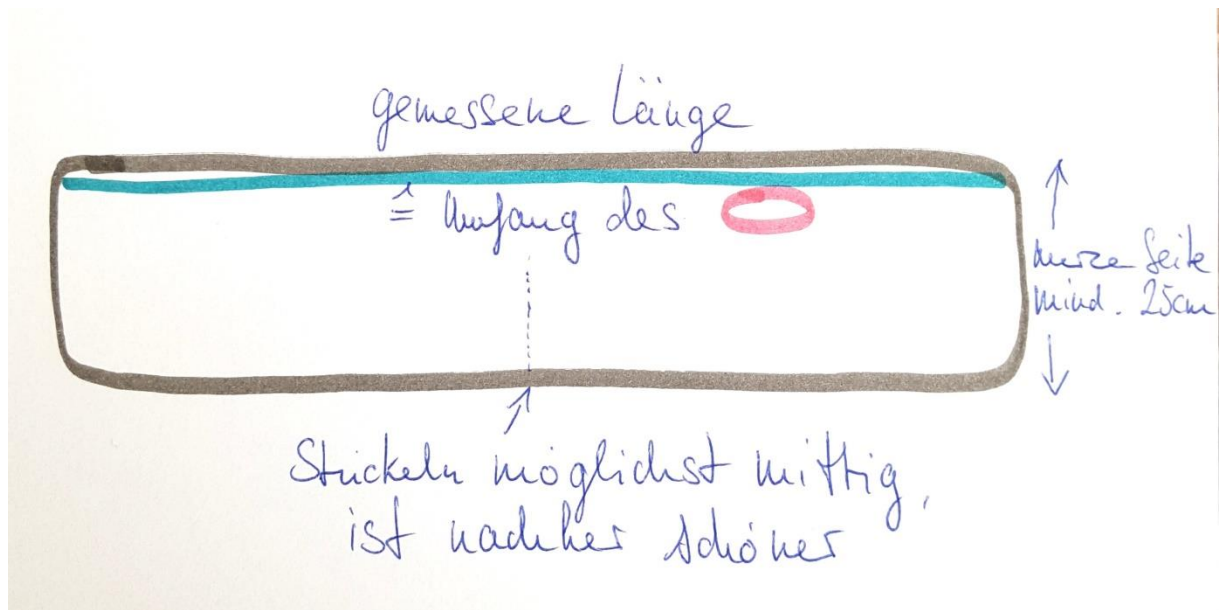 gemessene Länge
≙ Umfang des
kurze Seite
mind. 25cm
Stückeln möglichst mittig,
ist nachher schöner